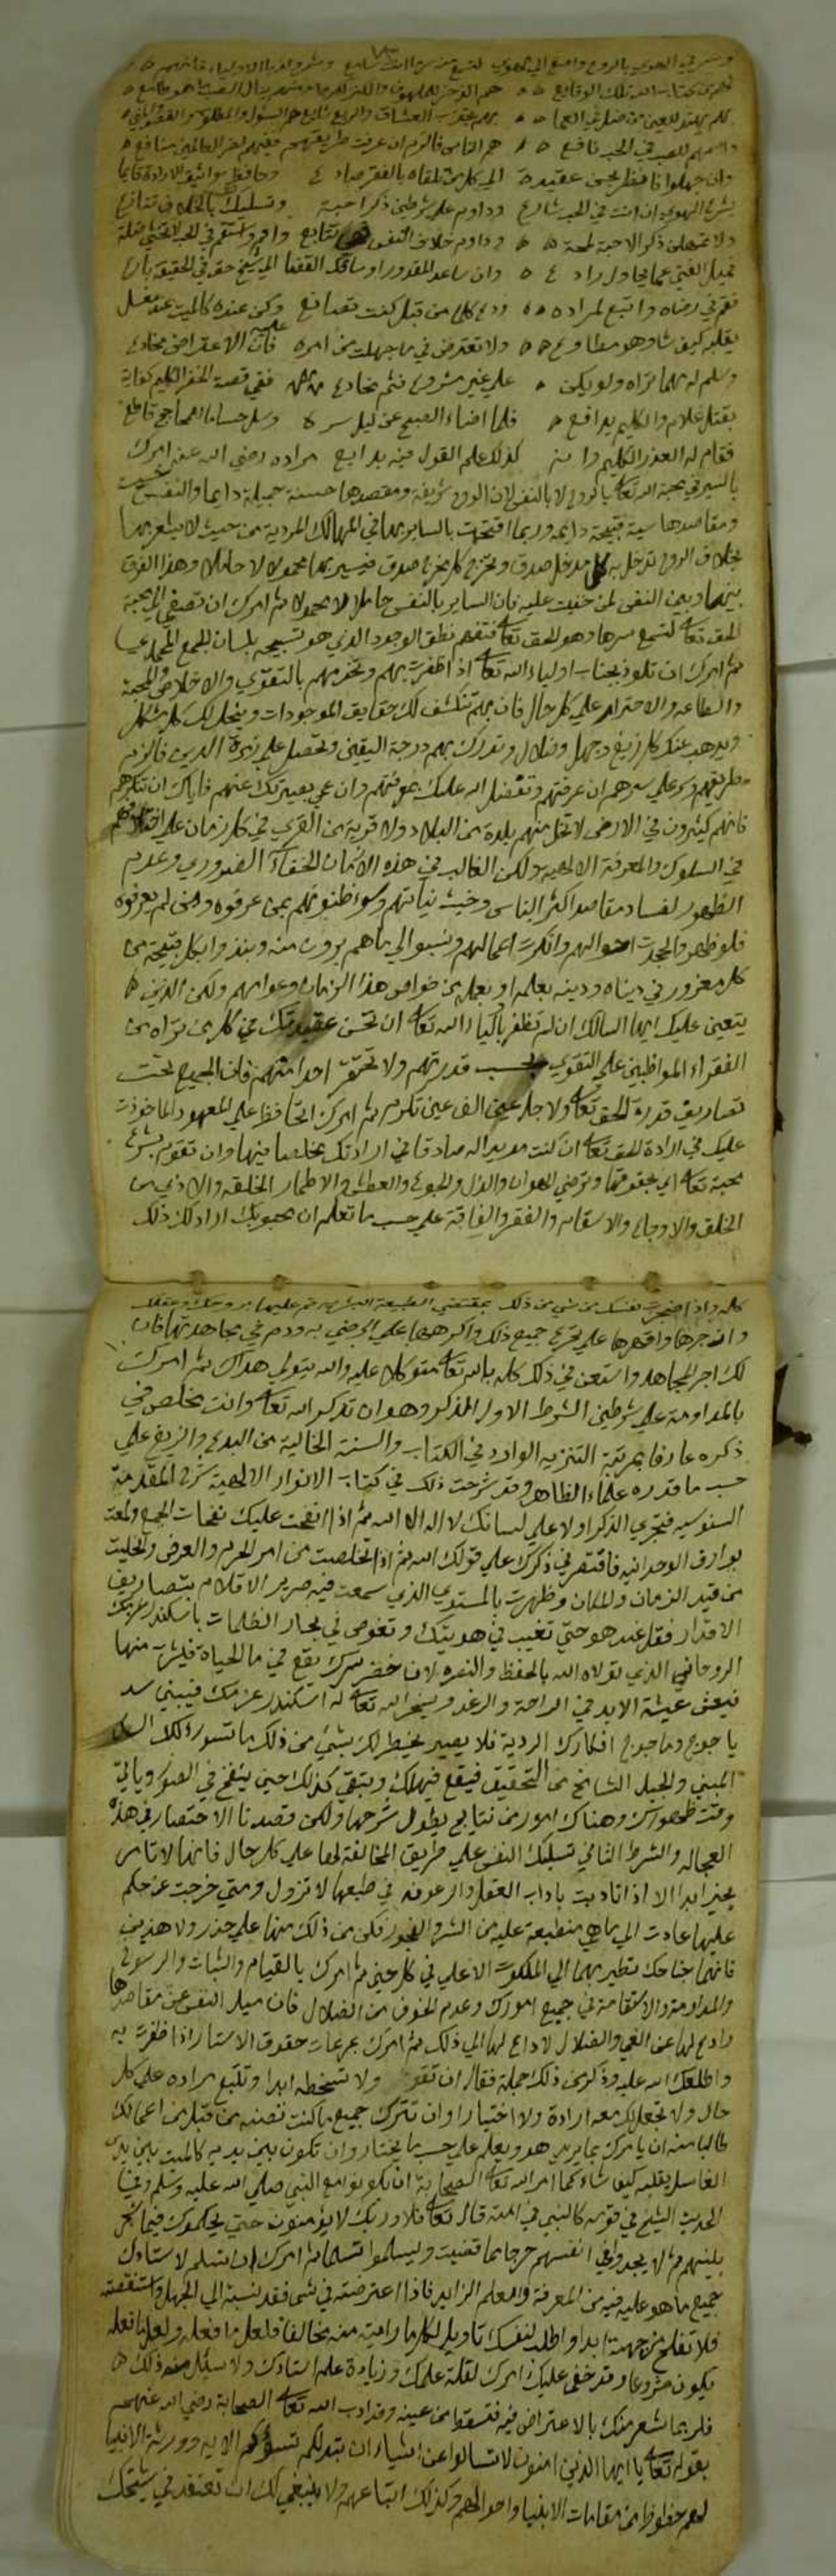 وسر في الهوى بالروح واصغ الى الهوى لتسمع من سر
هم الذخر للملهوف والكنز للرجا
هم الناس فالزم ان عرفت طريقهم ففيهم لضر العالمين منافع
وان جهلوا فانظر بحسن عقيدة الى كل من تلقاه بالفقر ضارع وحافظ مواثيق الارادة قائما
بشرع الهوى ان انت في الحب شارع وداوم على شرطين ذكر احبة وتسليك بالخلاف تنازع
ولا تهملن ذكر الاحبة لمحة وداوم خلاف النفس فهي تتابع واقم واستقم في الحب لا تخش ضلة
فميل الفتى عما يحاول رادع وان ساعد المقدور او ساقك القضا الى شيخ حق في الحقيقة بارع
فقم في رضاه واتبع لمراده ودع كل ما من قبل كنت تصانع وكن عنده كالميت عند مغسل
يقلبه كيف شا وهو مطاوع ولا تعترض في ما جهلت من امره عليه فان الاعتراض مخادع
وسلم له مهما تراه ولو يكن على غير مشروع فثم مخادع ففي قصة الخضر الكليم كفاية
بقتل غلام والكليم يدافع فلما اضاء الصبح عن ليل سره وسل حساما للمحاجج قاطع
فقام له العذر الكليم وانه كذلك علم القول فيه بدايع مراده رضي الله عنه امرك
بالسير في محبة الله تعا بالروح لا بالنفس لان الروح شريفة ومقصدها حسنة جميلة دايما والنفس خسيسة
ومقاصدها سية قبيحة دايمه وربما اقتحمت بالساير بها في المهالك المردية من حيث لا يشعر بها
بخلاف الروح تدخل به كل مدخل صدق وتخرج كل مخرج صدق فيسير بها محمولا لا حاملا وهذا الفرق
بينها وبين النفس لمن خفيت عليه فان الساير بالنفس حاملا لا محمولا ثم امرك ان تصغي الى محبة
الحق تعا لتسمع سرها وهو للحق تعا فتفهم نطق الوجود الذي هو تسبيحه بلسان الجمع المحمدي
ثم امرك ان تلوذ بجناب اولياء الله تعا اذا ظفرت بهم وتخدمهم بالتقوى والاخلاص والمحبة
والطاعه والاحترام على كل حال فان بهم تنكشف لك حقايق الموجودات وينحل لك كل مشكل
ويذهب عنك كل زيغ وجهل وضلال وتدرك بهم درجة اليقين وتحصل على زبدة الدين فالزم
طريقهم وسر على سيرهم ان عرفتهم وتفضل الله عليك بمعرفتهم وان عمي بصيرتك عنهم فاياك ان تنكرهم
فانهم كثيرون في الارض لا تخلو منهم بلدة من البلاد ولا قرية من القرى في كل زمان على اختلافهم
في السلوك والمعرفة الالهية ولكن الغالب في هذه الازمان الخفاء الضروري وعدم
الظهور لفساد مقاصد اكثر الناس وخبث نياتهم وسوء ظنونهم بمن عرفوه ومن لم يعرفوه
فلو ظهروا لجحدت احوالهم وانكرت اعمالهم ونسبوا الى ما هم برون منه ونبذوا بكل قبيحة من
كل مغرور في دنياه ودينه بعلمه او بعمله من خواص هذا الزمان وعوامهم ولكن الذي
يتعين عليك ايها السالك ان لم تظفر باولياء الله تعا ان تحسن عقيدتك في كل من تراه من
الفقراء المواظبين على التقوى بحسب قدرتهم ولا تحتقر احدا منهم فان الجميع تحت
تصاريف قدرة الحق تعا ولاجل عين الف عين تكرم ثم امرك ان تحافظ على المعهود الماخوذ
عليك في ارادة الحق تعا ان كنت مريدا له صادقا في ارادتك مخلصا فيها وان تقوم بشرع
محبة تعا اي بحقوقها وترضى الهوان والذل والجوع والعطش والاطمار الخلقه والاذى من
الخلق والاوجاع والاسقام والفقر والفاقة على حسب ما تعلم ان محبوبك اراد لك ذلك
كله واذا ضجرت نفسك من شي من ذلك بمقتضى الطبيعة البشريه قم عليها بروحك وعقلك
وازجرها واقهرها على تجرع جميع ذلك واكرهها على الرضى به ودم في مجاهدتها فان
لك اجر المجاهد واستعن في ذلك كله بالله تعا متوكلا عليه والله يتولى هداك ثم امرك
بالمداومة على شرطين الشرط الاول الذكر وهو ان تذكر الله تعا وانت مخلص في
ذكره عارفا بمرتبة التنزيه الوارد في الكتاب والسنة الخالية من البدع والزيغ على
حسب ما قدره علماء الظاهر وقد شرحت ذلك في كتاب الانوار الالهية شرح المقدمة
السنوسيه فتجري الذكر اولا على لسانك لا اله الا الله ثم اذا نفحت عليك نفحات الجمع ولمعت
بوارق الوحدانيه فاقتصر في ذكرك على قولك الله ثم اذا تخلصت من امر الجرم والعرض وتخليت
من قيد الزمان والمكان وظهرت بالمستوى الذي سمعت فيه صرير الاقلام بتصاريف
الاقدار فقل عند هو حتى تغيب في هويتك وتغوص في بحار الظلمات باسكندر عزمك
الروحاني الذي تولاه الله بالحفظ والنصره لان خضر سرك يقع في ما الحياة فيشرب منها
فيعش عيشة الابد في الراحة والرغد ويسخر الله تعا له اسكندر عزمك فيبني سد
ياجوج وماجوج افكارك الردية فلا يصير يخطر لك بشي من ذلك ما تسور ذلك السد
المبني والجبل الشامخ من التحقيق فيقع فيهلك ويبقى كذلك حين ينفخ في الصور وياتي
وقت ظهورك وهناك امور من نتايج يطول شرحها ولكن قصدنا الاختصار في هذه
العجاله والشرط الثاني تسليك النفس على طريق المخالفة لها على كل حال فانها لا تامر
بخير ابدا الا اذا تادبت باداب العقل والرعونه في طبعها لا تزول ومتى خرجت عن حكم
عليها عادت الى ما هي منطبعة عليه من الشر والفجور فكن من ذلك منها على حذر ولا هذين
فانهما جناحك تطير بهما الى الملكوت الاعلى في كل حين ثم امرك بالقيام والثبات والرسوخ
والمداومة والاستقامة في جميع امورك وعدم الخوف من الضلال فان ميل النفس عن مقاصدها
رادع لها عن الغي والضلال لا داع لها الى ذلك ثم امرك بمراعات حقوق الاستاذ اذا ظفرت به
واطلعك الله عليه وذكر من ذلك جملة فقال ان تقوم ولا تسخطه ابدا وتتبع مراده على كل
حال ولا تجعل لك معه ارادة ولا اختيارا وان تترك جميع ما كنت تصنعه من قبل من اعمالك
طالبا منه ان يامرك بما يريد هو ويعلم على حسب ما يختار وان تكون بين يديه كالميت بين يدي
الغاسل يقلبه كيف شاء كما امر الله تعا الصحابة ان يكونوا مع النبي صلى الله عليه وسلم وفي
الحديث الشيخ في قومه كالنبي في امته قال تعا فلا وربك لا يؤمنون حتى يحكموك فيما شجر
بينهم ثم لا يجدوا في انفسهم حرجا مما قضيت ويسلموا تسليما ثم امرك ان تسلم لاستاذك
جميع ما هو عليه فيه من المعرفة والعلم الزايد فاذا اعترضته في شي فقد نسبته الى الجهل واستنقصته
فلا تفلح من جهته ابدا واطلب لنفسك تاويلا لكل ما رايت منه مخالفا فلعل ما فعله ولعل ما فعله
يكون مشروعا وقد خفي عليك امرك لقلة علمك وزيادة علم استاذك ولا تسئل منه ذلك
فلربما شعر منك بالاعتراض فيه فتسقط من عينه وقد ادب الله تعا الصحابة رضي الله عنهم
بقوله تعا يا ايها الذين امنوا لا تسالوا عن اشياء ان تبد لكم تسؤكم الايه وورثة الانبيا
لهم حظوظ من مقامات الانبيا واحوالهم وكذلك اتباعهم ولا ينبغي لك ان تعتقد في شيخك